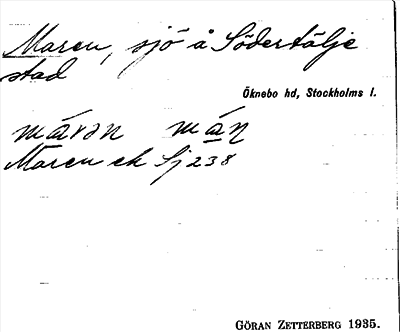 Maren, sjö å Södertälje
stad
Öknebo hd, Stockholms l.
márən mán̥
Maren ek Sj 238
GÖRAN ZETTERBERG 1935.